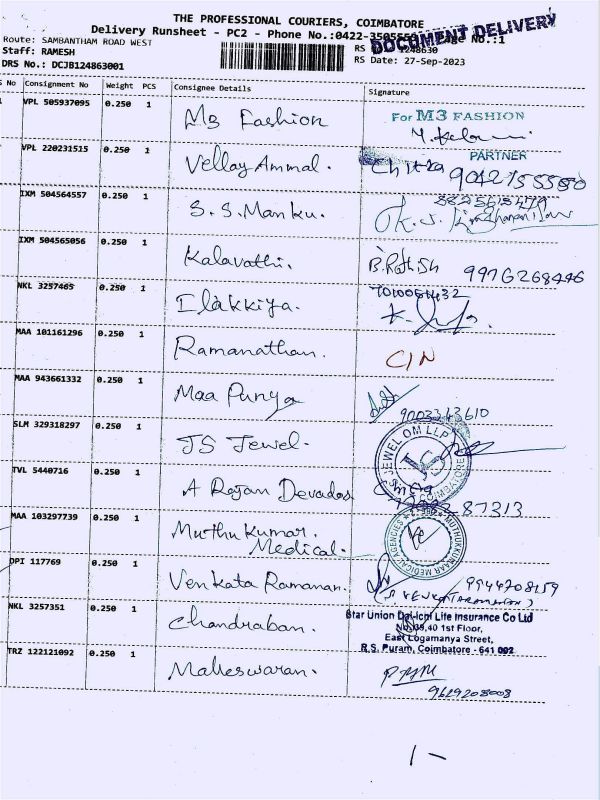 THE PROFESSIONAL COURIERS, COIMBATORE
Delivery Runsheet - PC2 - Phone No.:0422-350555 No.:1
DOCUMENT DELIVERY
Route: SAMBANTHAM ROAD WEST
RS 1248630
Staff: RAMESH
RS Date: 27-Sep-2023
DRS No.: DCJB124863001
S No Consignment No Weight PCS Consignee Details Signature
VPL 505937095 0.250 1 M3 Fashion For M3 FASHION
PARTNER
VPL 220231515 0.250 1 Vellay Ammal. Chitra 9042755580
IXM 504564557 0.250 1 S.S.Manku.
IXM 504565056 0.250 1 Kalavathi. B.Rathish 9976268446
NKL 3257465 0.250 1 Ilakkiya. 7010061432
MAA 101161296 0.250 1 Ramanathan. C/N
MAA 943661332 0.250 1 Maa Punya 9003343610
SLM 329318297 0.250 1 JS Jewel. JEWEL OM LLP
TVL 5440716 0.250 1 A Rajan Devados 87313
MAA 103297739 0.250 1 Muthu Kumar. Medical. MUTHUKKUMAAR MEDICAL AGENCIES
OPI 117769 0.250 1 Venkata Ramanan. 9944708159
(S VENKATARAMANAN)
NKL 3257351 0.250 1 Chandraban. Star Union Dai-ichi Life Insurance Co Ltd
No:39,40 1st Floor,
East Logamanya Street,
R.S. Puram, Coimbatore - 641 002
TRZ 122121092 0.250 1 Maheswaran. 9629208008
1 -